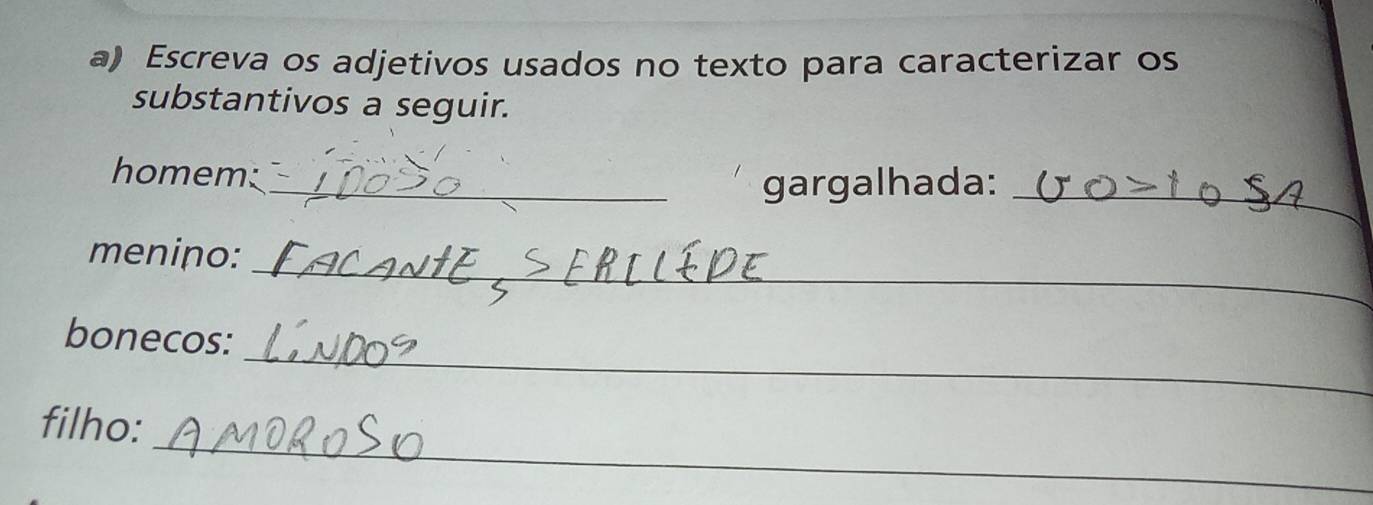 a) Escreva os adjetivos usados no texto para caracterizar os
substantivos a seguir.
homem: IDOSO gargalhada: GOSTOSA
menino: FACANTE, SERELÉPE
bonecos: LINDOS
filho: AMOROSO